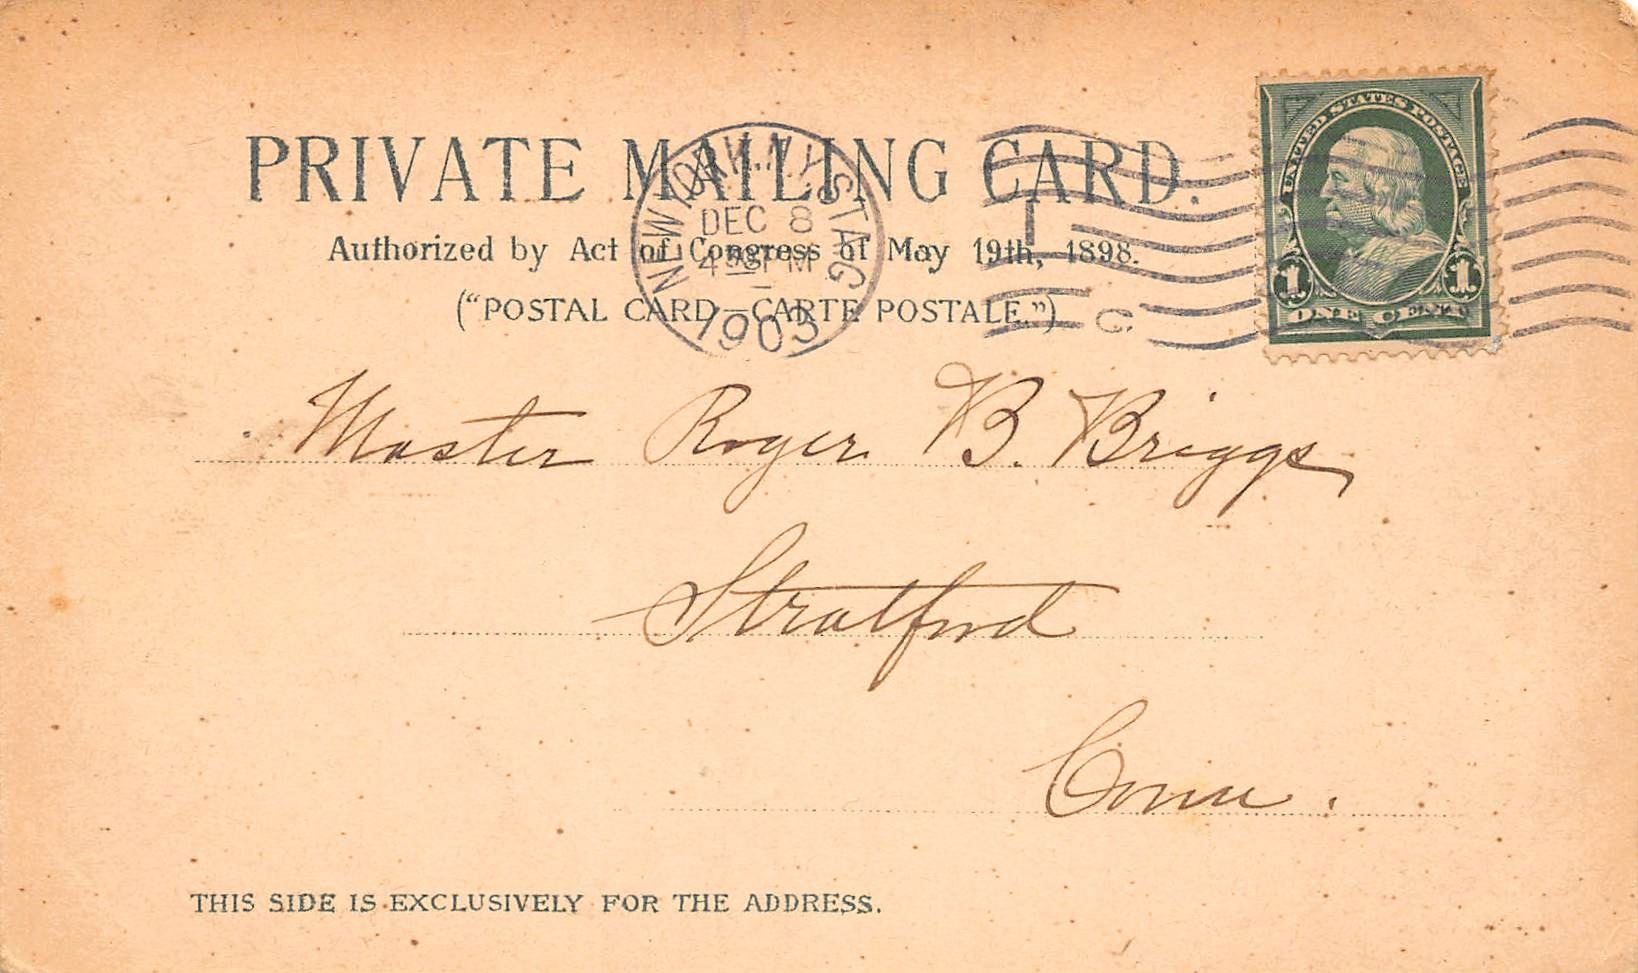 PRIVATE MAILING CARD.
Authorized by Act of Congress of May 19th, 1898.
("POSTAL CARD—CARTE POSTALE.")
NEW YORK, N.Y. STA G
DEC 8
4 PM
1903
1
C
UNITED STATES POSTAGE
1 1
ONE CENT
Master Roger B. Briggs
Stratford
Conn.
THIS SIDE IS EXCLUSIVELY FOR THE ADDRESS.